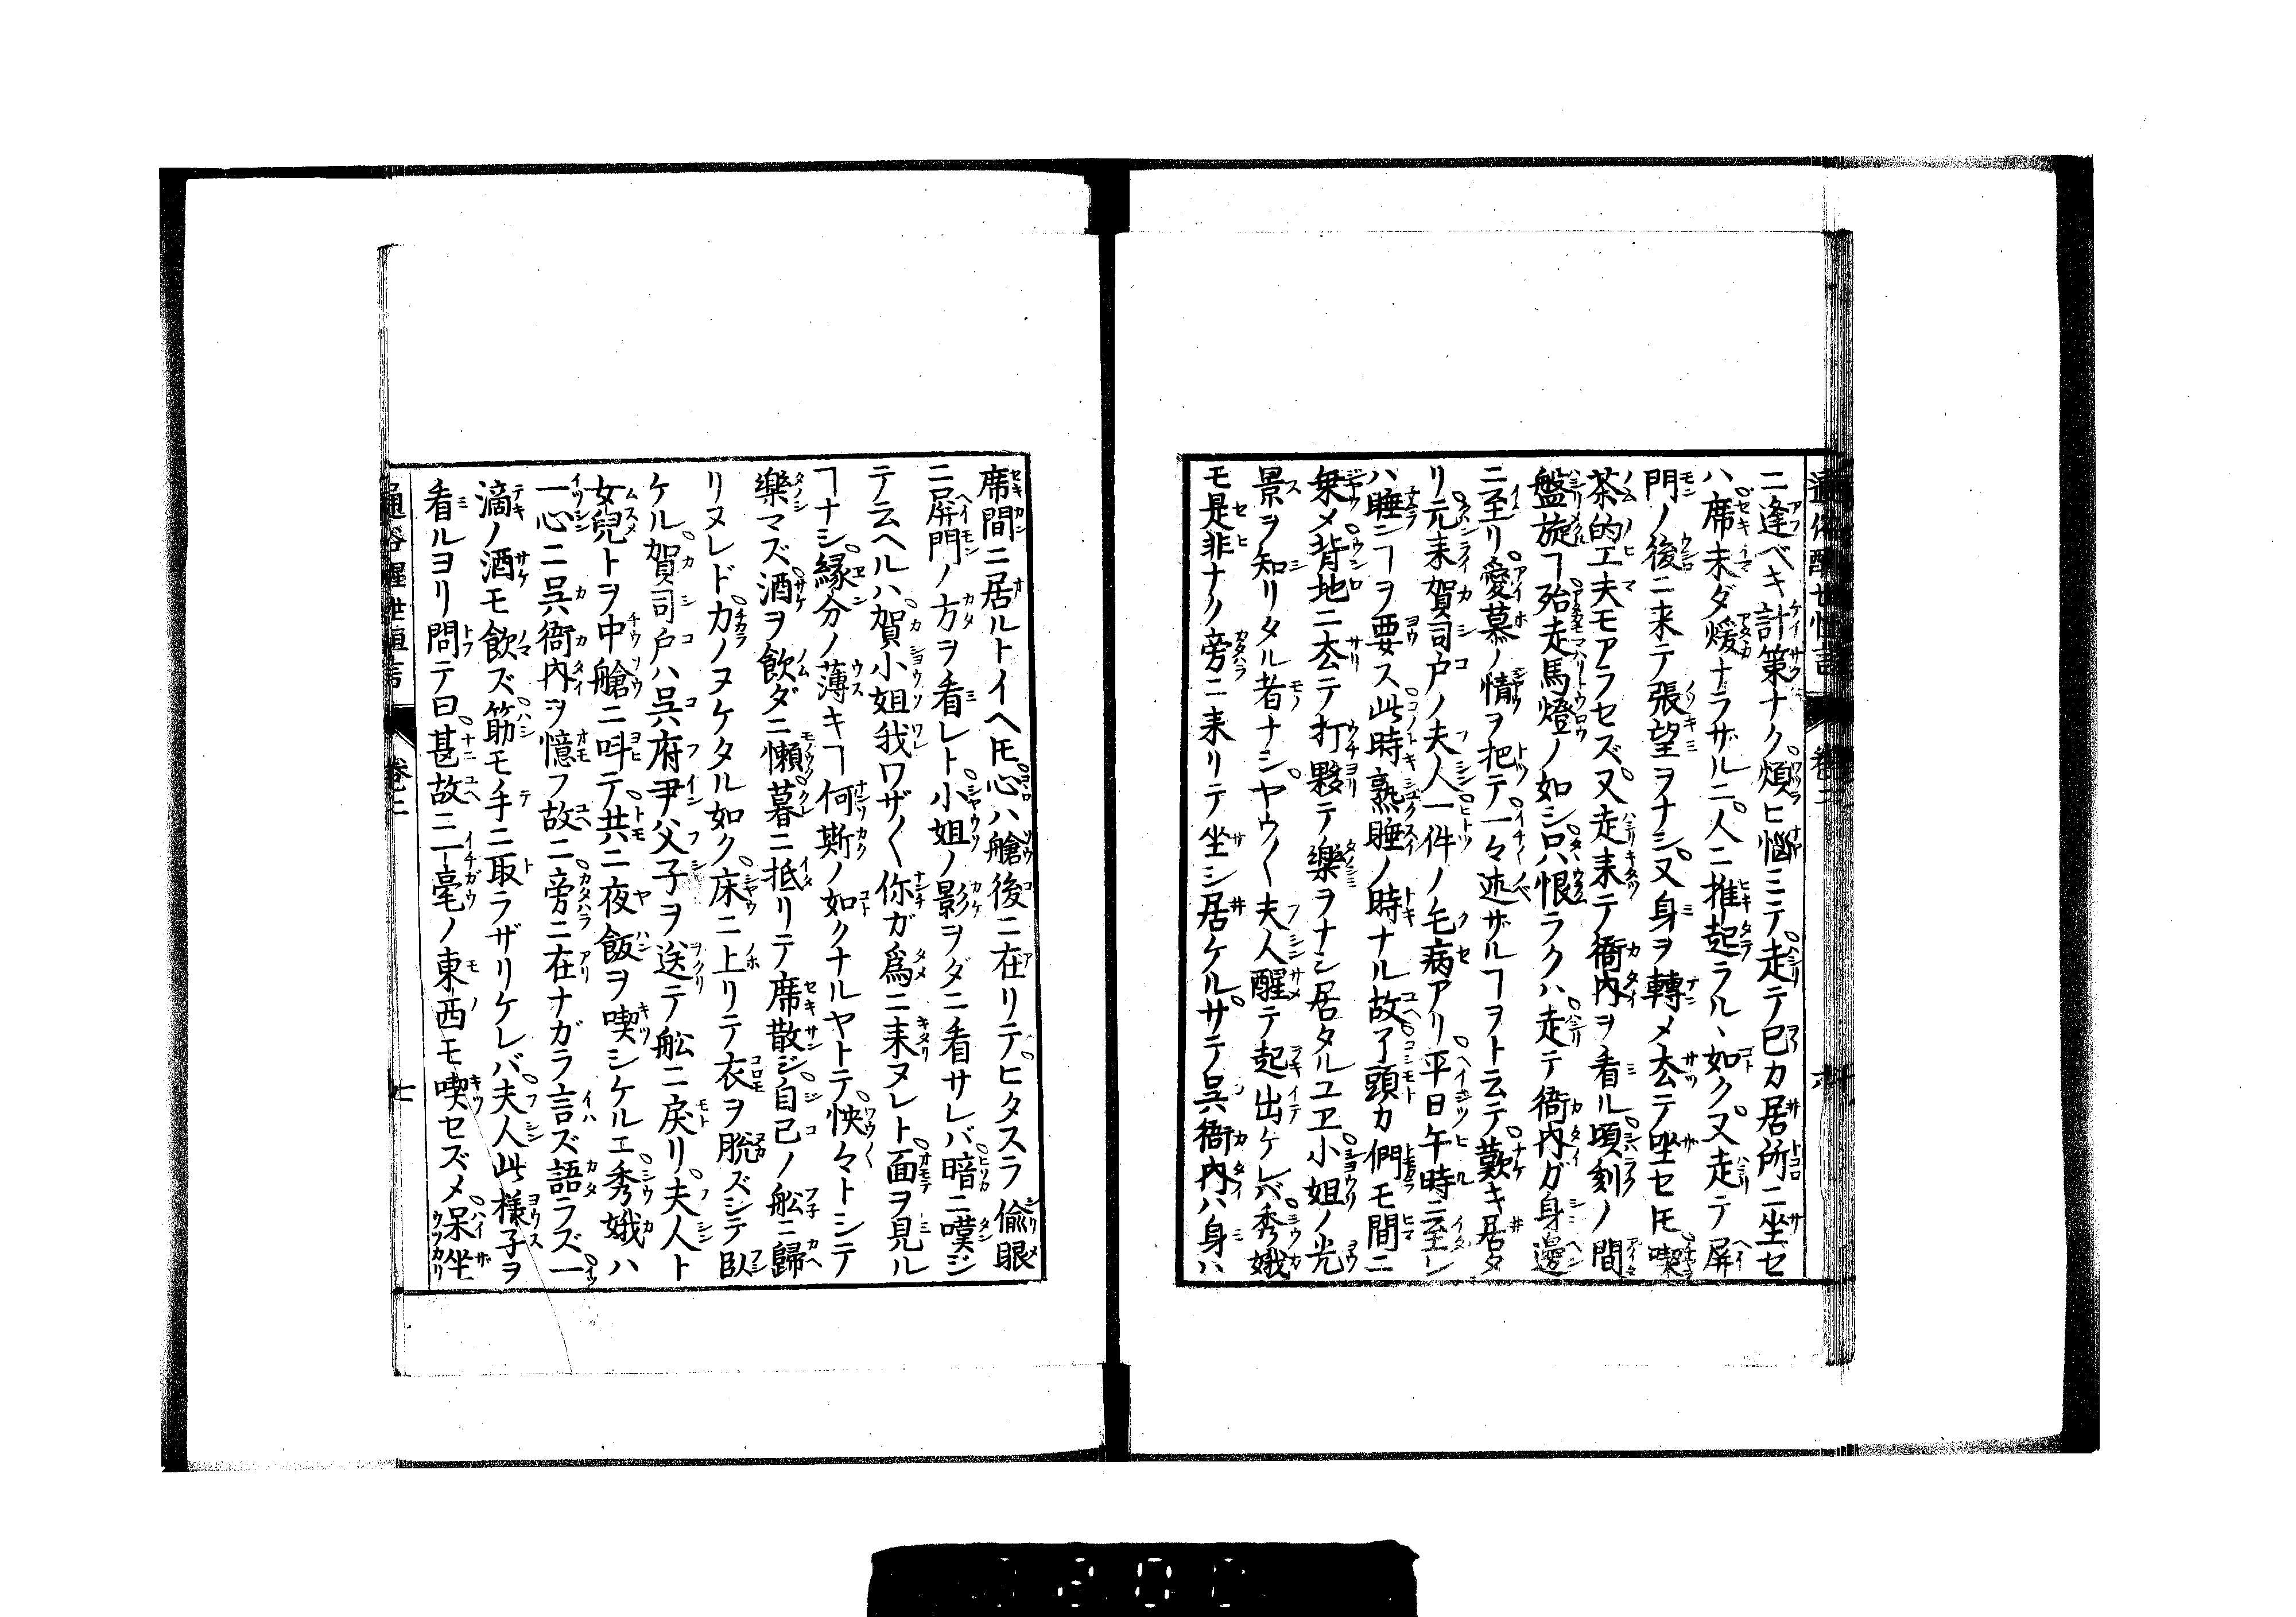 ニ逢ベキ計策ナク煩ヒ惱ミテ走テ己カ居所ニ坐セ
ハ席未ダ煖ナラザルニ人ニ推起ラルヽ如ク又走テ屏
門ノ後ニ来テ張望ヲナシ又身ヲ轉メ去テ坐セ𪜈喫
茶的工夫モアラセズ又走来テ衙内ヲ看ル頃刻ノ間
盤旋ヿ殆走馬燈ノ如シ只恨ラクハ走テ衙内ガ身邊
ニ至リ愛慕ノ情ヲ把テ一々述ザルヿヲト云テ歎キ居タ
リ元来賀司户ノ夫人一件ノ毛病アリ平日午時ニ至レ
ハ睡ニヿヲ要ス此時熟睡ノ時ナル故了頭カ們モ間ニ
乗メ背地ニ去テ打夥テ樂ヲナシ居タルユヱ小姐ノ光
景ヲ知リタル者ナシヤウ〱夫人醒テ起出ケレバ秀娥
モ是非ナク旁ニ来リテ坐シ居ケルサテ呉衙内ハ身ハ
席間ニ居ルトイヘ𪜈心ハ艙後ニ在リテヒタスラ偸眼
ニ屏門ノ方ヲ看レト小姐ノ影ヲダニ看サレバ暗ニ嘆ジ
テ云ヘルハ賀小姐我ワザ〱你ガ爲ニ来ヌレト面ヲ見ル
ヿナシ縁分ノ薄キヿ何斯ノ如クナルヤトテ怏々トシテ
樂マズ酒ヲ飲ダニ懶暮ニ抵リテ席散ジ自己ノ舩ニ歸
リヌレド力ノヌケタル如ク床ニ上リテ衣ヲ脱ズシテ臥
ケル賀司户ハ呉府尹父子ヲ送テ舩ニ戻リ夫人ト
女兒トヲ中艙ニ呌テ共ニ夜飯ヲ喫シケルエ秀娥ハ
一心ニ呉衙内ヲ憶フ故ニ旁ニ在ナガラ言ズ語ラズ一
滴ノ酒モ飲ズ筯モ手ニ取ラザリケレバ夫人此様子ヲ
看ルヨリ問テ曰甚故ニ一毫ノ東西モ喫セズメ呆坐
通俗醒世恒言 卷二 七